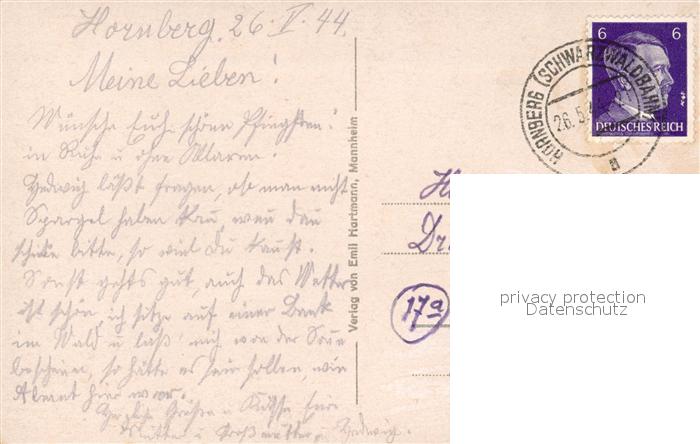 Hornberg, 26. V. 44.
Meine Lieben!
Wünsche Euch schöne Pfingsten!
in Ruhe u ohne Alarm.
Hedwig läßt fragen, ob man nicht
Spargel haben kau, wen dan
schicke bitte, so viel Du kaust.
Sonst gehts gut, auch das Wetter
ist schön, ich sitze auf einer Bank
im Wald u laß mich von der Sone
bescheinen, so hätte es sein sollen, wie
hier war.
Herzliche Grüße u Küsse Eure
Mutter u Großmutter, Hedwig.
Verlag von Emil Hartmann, Mannheim
6 6
DEUTSCHES REICH
HORNBERG (SCHWARZWALDBAHN)
26.5.
a
Dr.
17a
privacy protection
Datenschutz